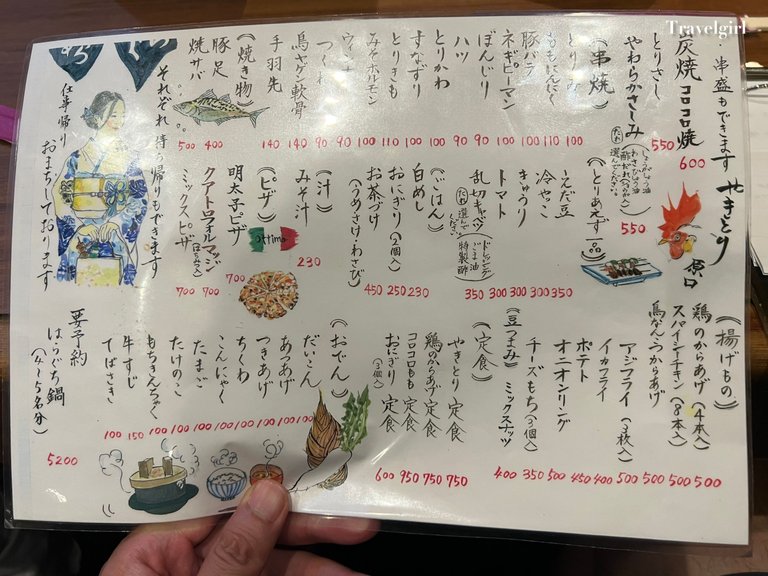 Travelgirl
やきとり 原口
・串盛もできます
炭焼コロコロ焼 600
とりさし 550
やわらかさしみ 550
《串焼》
とりみ 100
ももにんにく 110
豚バラ 100
ネギピーマン 100
ぼんじり 90
ハツ 90
とりかわ 100
すなずり 100
とりきも 110
みそホルモン 100
ウインナー 90
つくね 90
鳥サゲン軟骨 140
手羽先 140
《焼き物》
豚足 400
焼サバ 500
それぞれ持ち帰りもできます
仕事帰り
おまちしております
《とりあえず一品》
えだ豆 350
冷やっこ 300
きゅうり 300
トマト 300
乱切キャベツ 350
(ドレッシング ごま油 特製酢 たれ選んでください)
《ごはん》
白めし 230
おにぎり(2個) 250
お茶づけ 450
(うめ・さけ・わさび)
《汁》
みそ汁 230
《ピザ》
ottimo
明太子ピザ 700
クアトロフォルマッジ(はちみつ入) 700
ミックスピザ 700
《揚げもの》
鶏のからあげ(4本入) 500
スパイシーチキン(8本入) 500
鳥なんこつからあげ 500
アジフライ(3枚入) 500
イカフライ 400
ポテト 450
オニオンリング 500
チーズもち(3個入) 350
《豆つまみ》
ミックスナッツ 400
《定食》
やきとり定食 750
鶏のからあげ定食 750
コロコロもも定食 950
おにぎり定食(3個入) 600
《おでん》
だいこん 100
あつあげ 100
つきあげ 100
ちくわ 100
こんにゃく 100
たまご 100
たけのこ 100
もちきんちゃく 100
牛すじ 150
てばさき 100
要予約
はらぐち鍋
(4〜5名分) 5200